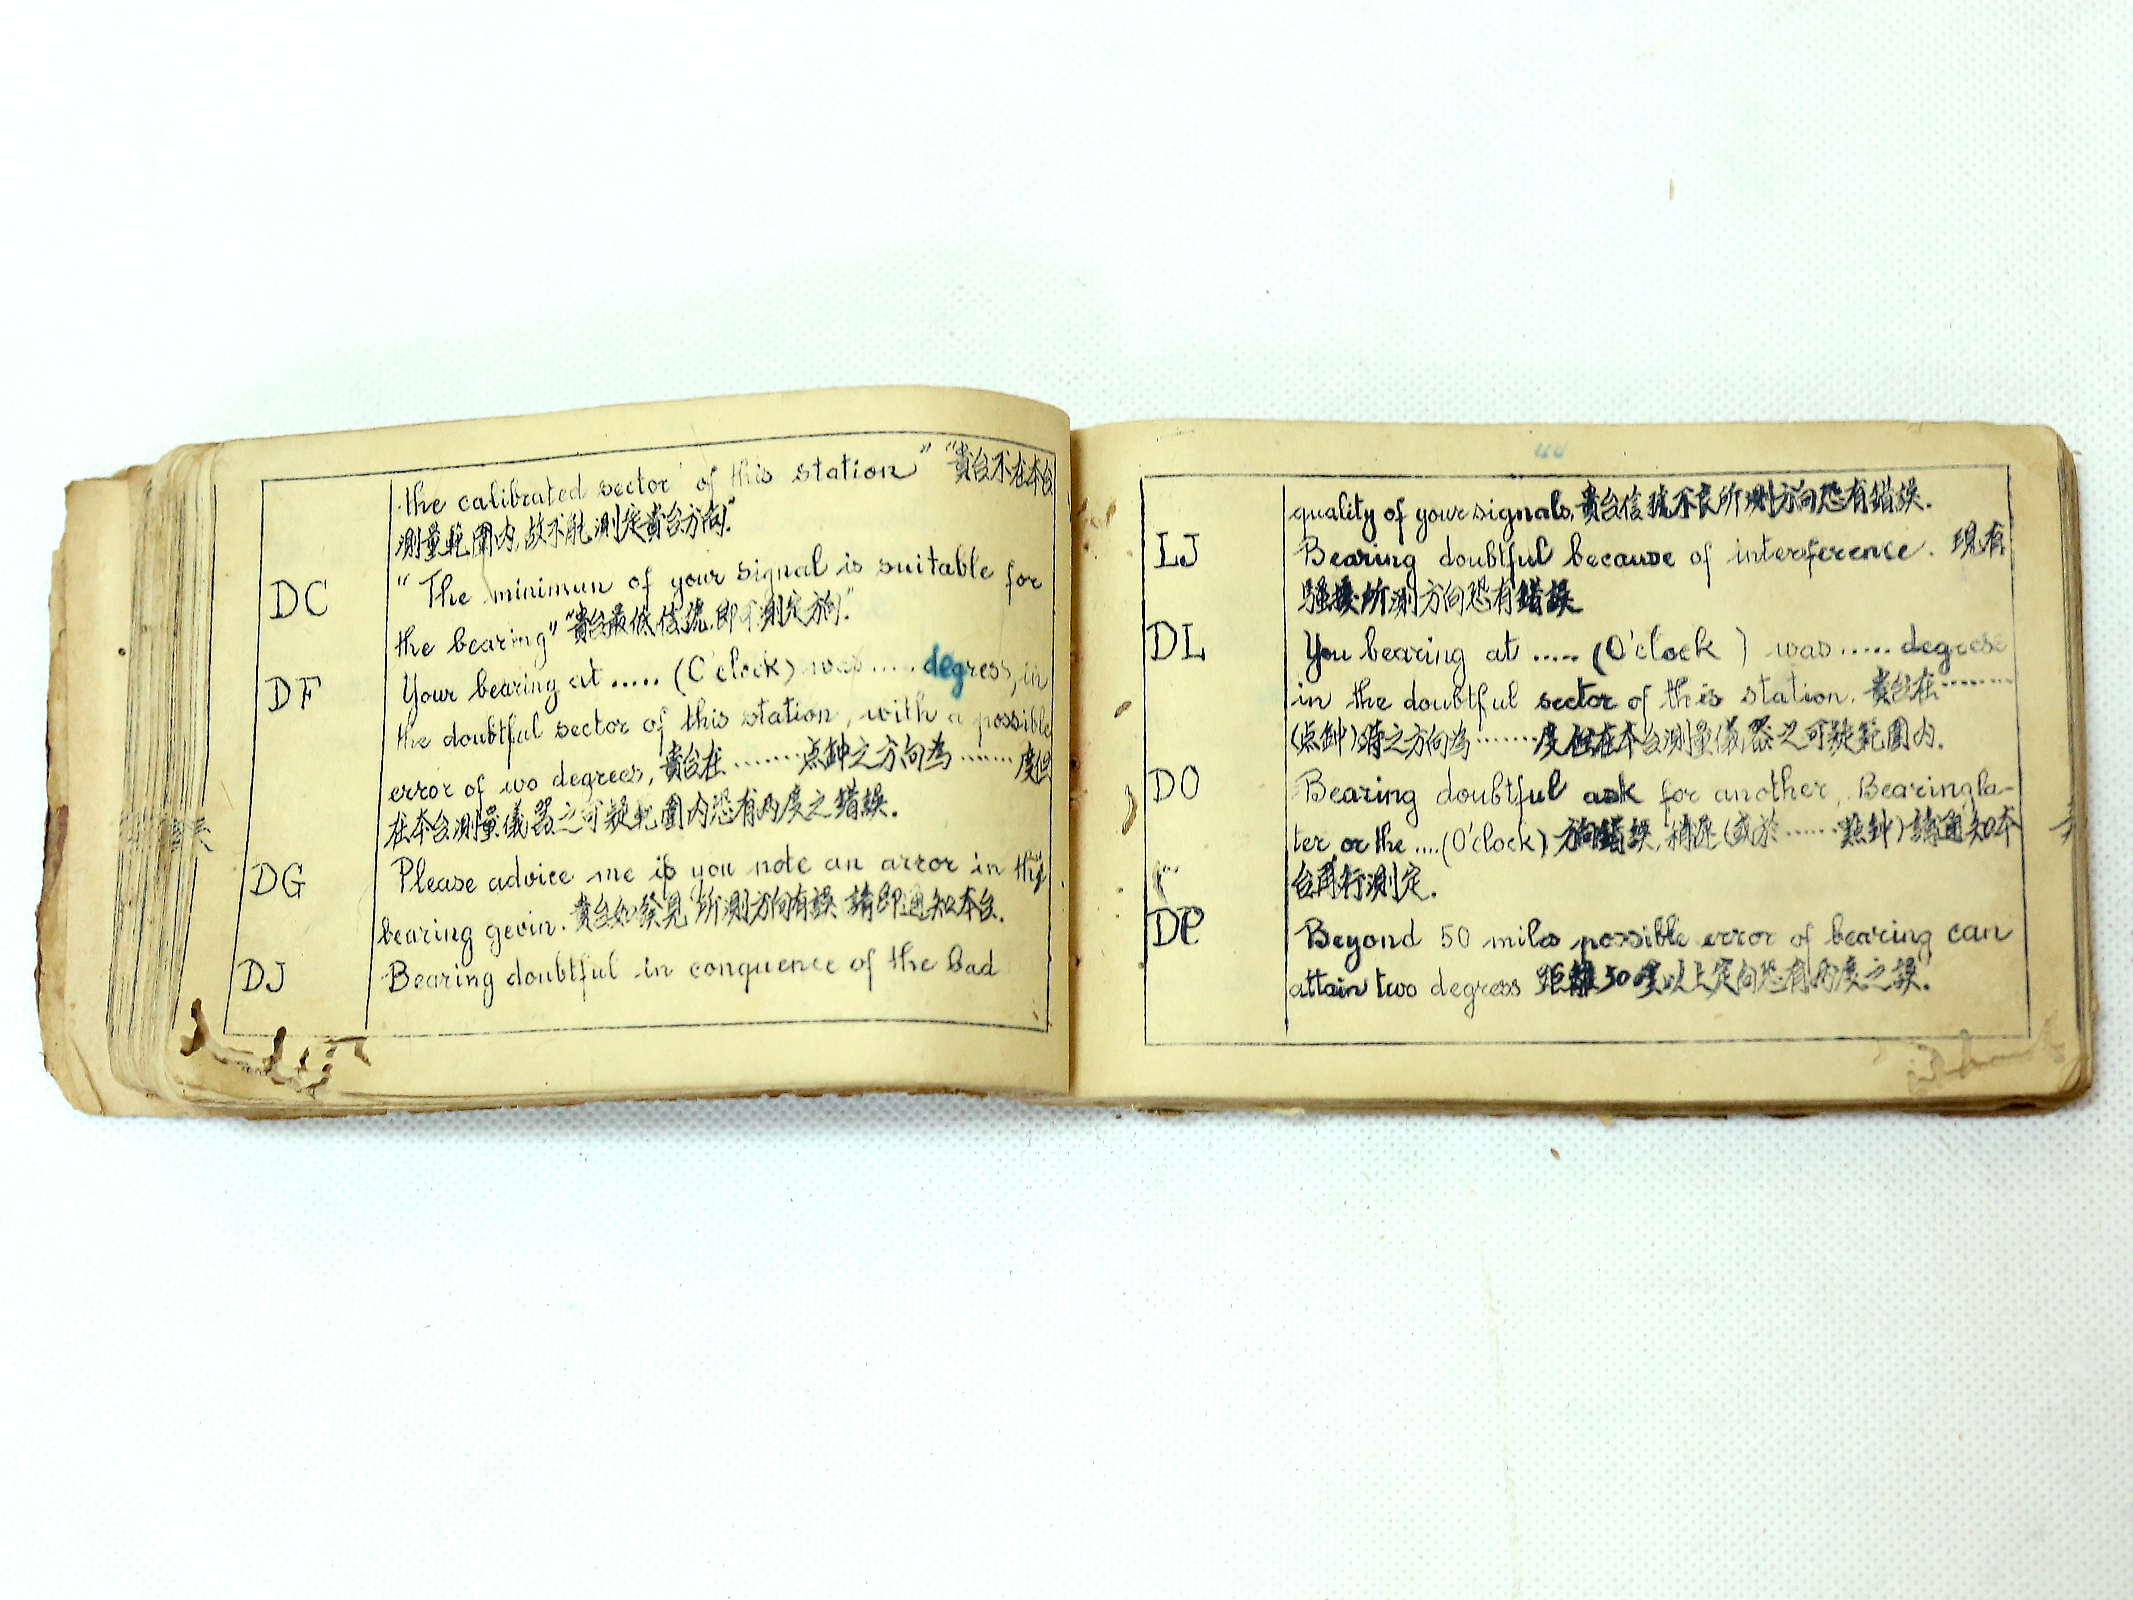 the calibrated sector of this station" "貴台不在本台
測量範圍内,故不能測定貴台方向."
DC "The minimun of your signal is suitable for
the bearing" "貴台最低信號.即可測定方向."
DF Your bearing at ..... (O'clock) was ..... degress, in
the doubtful sector of this station, with a possible
error of wo degrees, 貴台在 ....... 点鈡之方向為 ....... 度但
在本台測量儀器之可疑範圍内恐有两度之錯誤.
DG Please advice me if you note an arror in the
bearing gevin. 貴台如發見所測方向有誤請即通知本台.
DJ Bearing doubtful in conquence of the bad
quality of your signals, 貴台信號不良所測方向恐有錯誤.
LJ Bearing doubtful because of interference. 現有
騷擾所測方向恐有錯誤
DL You bearing at ..... (O'clock) was ..... degrese
in the doubtful sector of this station. 貴台在 ........
(点鈡)時之方向為 ....... 度但在本台測量儀器之可疑範圍内.
DO Bearing doubtful ask for another, Bearing la-
ter or the .... (O'clock) 方向錯誤,稍遲(或於 ...... 點鈡)請通知本
台再行測定.
DP Beyond 50 miles possible error of bearing can
attain two degress 距離50哩以上定向恐有两度之誤.